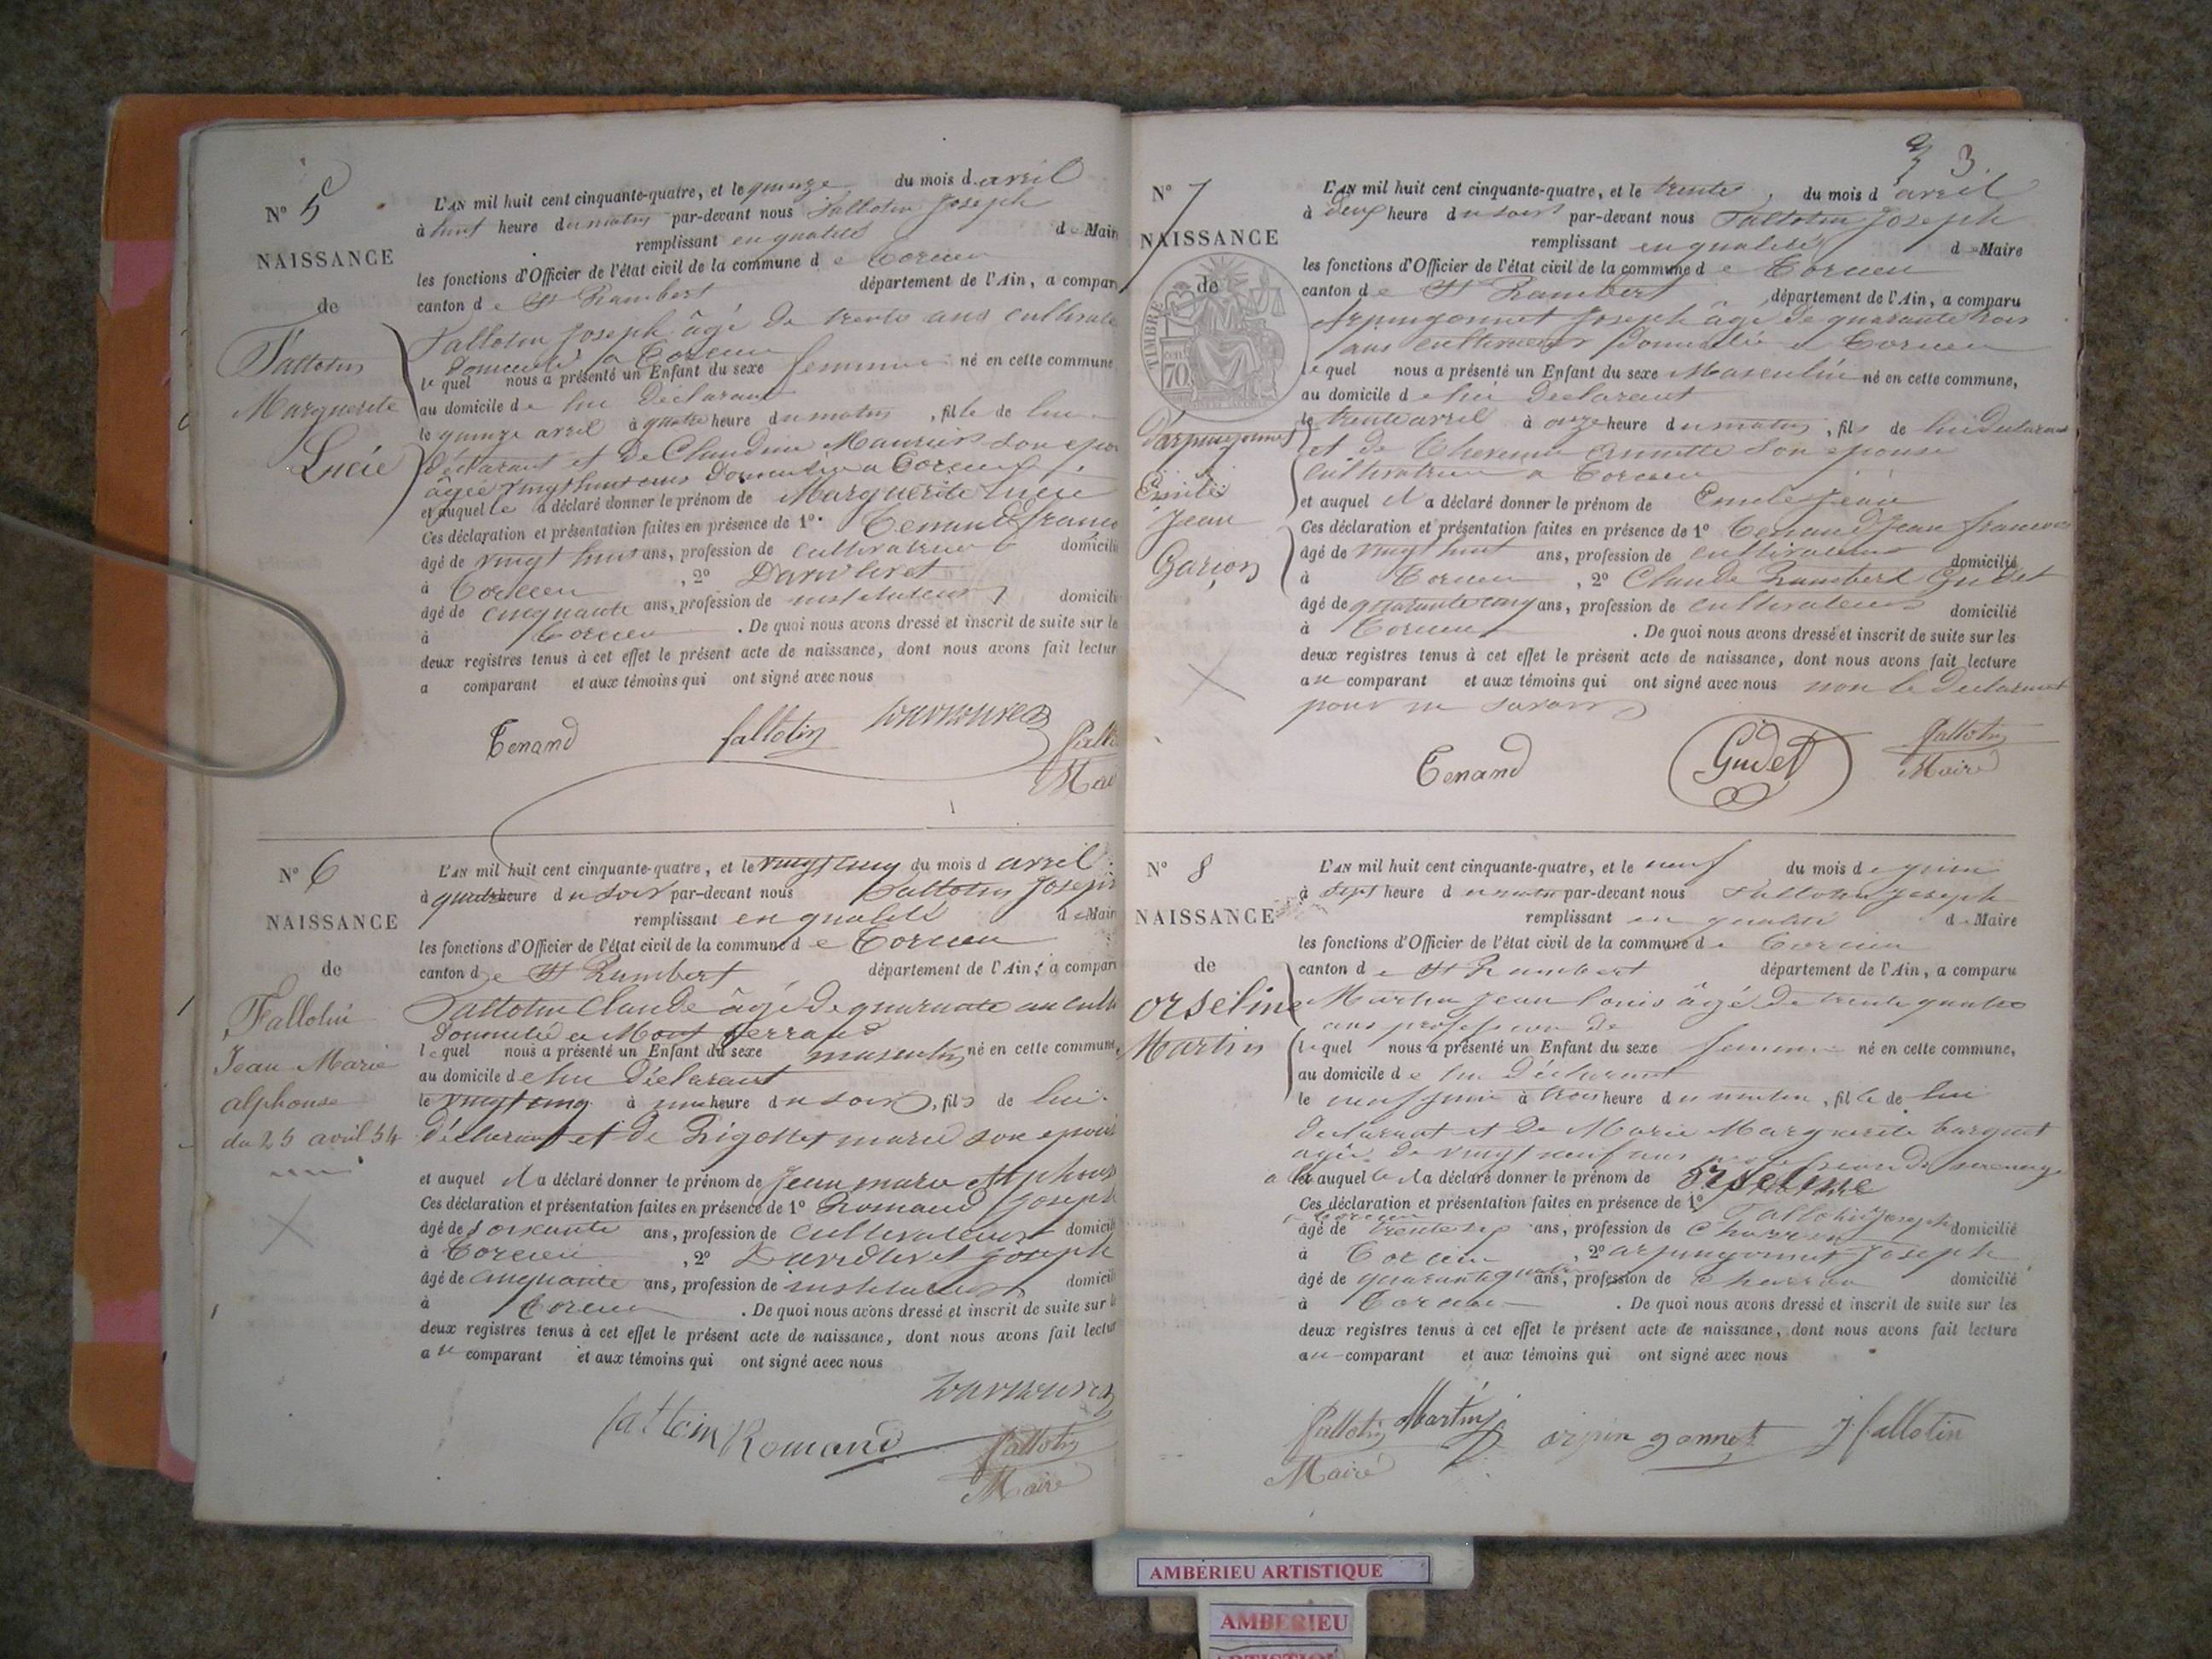 N° 5
NAISSANCE
de
Fallotin
Marguerite
Lucie
L'AN mil huit cent cinquante-quatre, et le quinze du mois d avril
à huit heure du matin par-devant nous Fallotin Joseph
remplissant en qualité de Mair
les fonctions d'Officier de l'état civil de la commune de Torcieu
canton de St Rambert département de l'Ain, a compar
Fallotin Joseph âgé de trente ans
domicilié a Torcieu
lequel nous a présenté un Enfant du sexe feminin né en cette commune
au domicile de lui déclarant
le quinze avril à quatre heure du matin, fille de lui
déclarant et de Claudine son
âgée vingt huit ans domiciliée a Torcieu
et auquel le a déclaré donner le prénom de Marguerite Lucie
Ces déclaration et présentation faites en présence de 1° Tenand
âgé de vingt huit ans, profession de cultivateur domicilié
à Torcieu, 2°
âgé de cinquante ans, profession de instituteur domicilié
à Torcieu. De quoi nous avons dressé et inscrit de suite sur le
deux registres tenus à cet effet le présent acte de naissance, dont nous avons fait lectur
a comparant et aux témoins qui ont signé avec nous
Tenand fallotin
N° 6
NAISSANCE
de
Fallotin
Jean Marie
alphonse
du 25 avril 54
L'AN mil huit cent cinquante-quatre, et le vingt cinq du mois d avril
à quatre heure du soir par-devant nous Fallotin Joseph
remplissant en qualité de Mair
les fonctions d'Officier de l'état civil de la commune de Torcieu
canton de St Rambert département de l'Ain, a compar
Fallotin Claude âgé de quarante
domicilié a Mont ferrand
lequel nous a présenté un Enfant du sexe masculin né en cette commune,
au domicile de lui déclarant
le vingt cinq à une heure du soir, fils de lui
déclarant et de Rigollet marie son
et auquel il a déclaré donner le prénom de Jean marie Alphonse
Ces déclaration et présentation faites en présence de 1° Romand Joseph
âgé de soixante ans, profession de cultivateur domicilié
à Torcieu, 2° Joseph
âgé de cinquante ans, profession de instituteur domicilié
à Torcieu. De quoi nous avons dressé et inscrit de suite sur
deux registres tenus à cet effet le présent acte de naissance, dont nous avons fait lectur
au comparant et aux témoins qui ont signé avec nous
fallotin Romand fallotin
Maire
3
N° 7
NAISSANCE
de
TIMBRE
70
Emile
Jean
Garçon
L'AN mil huit cent cinquante-quatre, et le trente du mois d avril
à deux heure du soir par-devant nous Fallotin Joseph
remplissant en qualité de Maire
les fonctions d'Officier de l'état civil de la commune de Torcieu
canton de St Rambert département de l'Ain, a comparu
Joseph âgé de quarante trois
ans cultivateur domicilié a Torcieu
lequel nous a présenté un Enfant du sexe Masculin né en cette commune,
au domicile de lui déclarant
le trente avril à onze heure du matin, fils de lui déclarant
et de Annette son épouse
cultivatrice a Torcieu
et auquel il a déclaré donner le prénom de Emile Jean
Ces déclaration et présentation faites en présence de 1° Tenand Jean francois
âgé de vingt huit ans, profession de cultivateur domicilié
à Torcieu, 2° Claude Rambert Gudet
âgé de quarante cinq ans, profession de cultivateur domicilié
à Torcieu. De quoi nous avons dressé et inscrit de suite sur les
deux registres tenus à cet effet le présent acte de naissance, dont nous avons fait lecture
au comparant et aux témoins qui ont signé avec nous non le déclarant
pour ne savoir
Tenand Gudet fallotin
Maire
N° 8
NAISSANCE
de
orseline
Martin
L'AN mil huit cent cinquante-quatre, et le neuf du mois de juin
à sept heure du matin par-devant nous Fallotin joseph
remplissant en qualité de Maire
les fonctions d'Officier de l'état civil de la commune de Torcieu
canton de St Rambert département de l'Ain, a comparu
Martin Jean louis âgé de trente quatre
ans profession de
lequel nous a présenté un Enfant du sexe feminin né en cette commune,
au domicile de lui déclarant
le neuf juin à trois heure du matin, fille de lui
déclarant et de Marie Marguerite
agée de vingt neuf ans profession de
auquel il a déclaré donner le prénom de orseline
Ces déclaration et présentation faites en présence de 1° Fallotin Joseph
âgé de ans, profession de domicilié
à Torcieu, 2° Joseph
âgé de quarante quatre ans, profession de domicilié
à Torcieu. De quoi nous avons dressé et inscrit de suite sur les
deux registres tenus à cet effet le présent acte de naissance, dont nous avons fait lecture
au comparant et aux témoins qui ont signé avec nous
fallotin Martin arpin gonnet j fallotin
Maire
AMBÉRIEU ARTISTIQUE
AMBERIEU
ARTISTIQUE